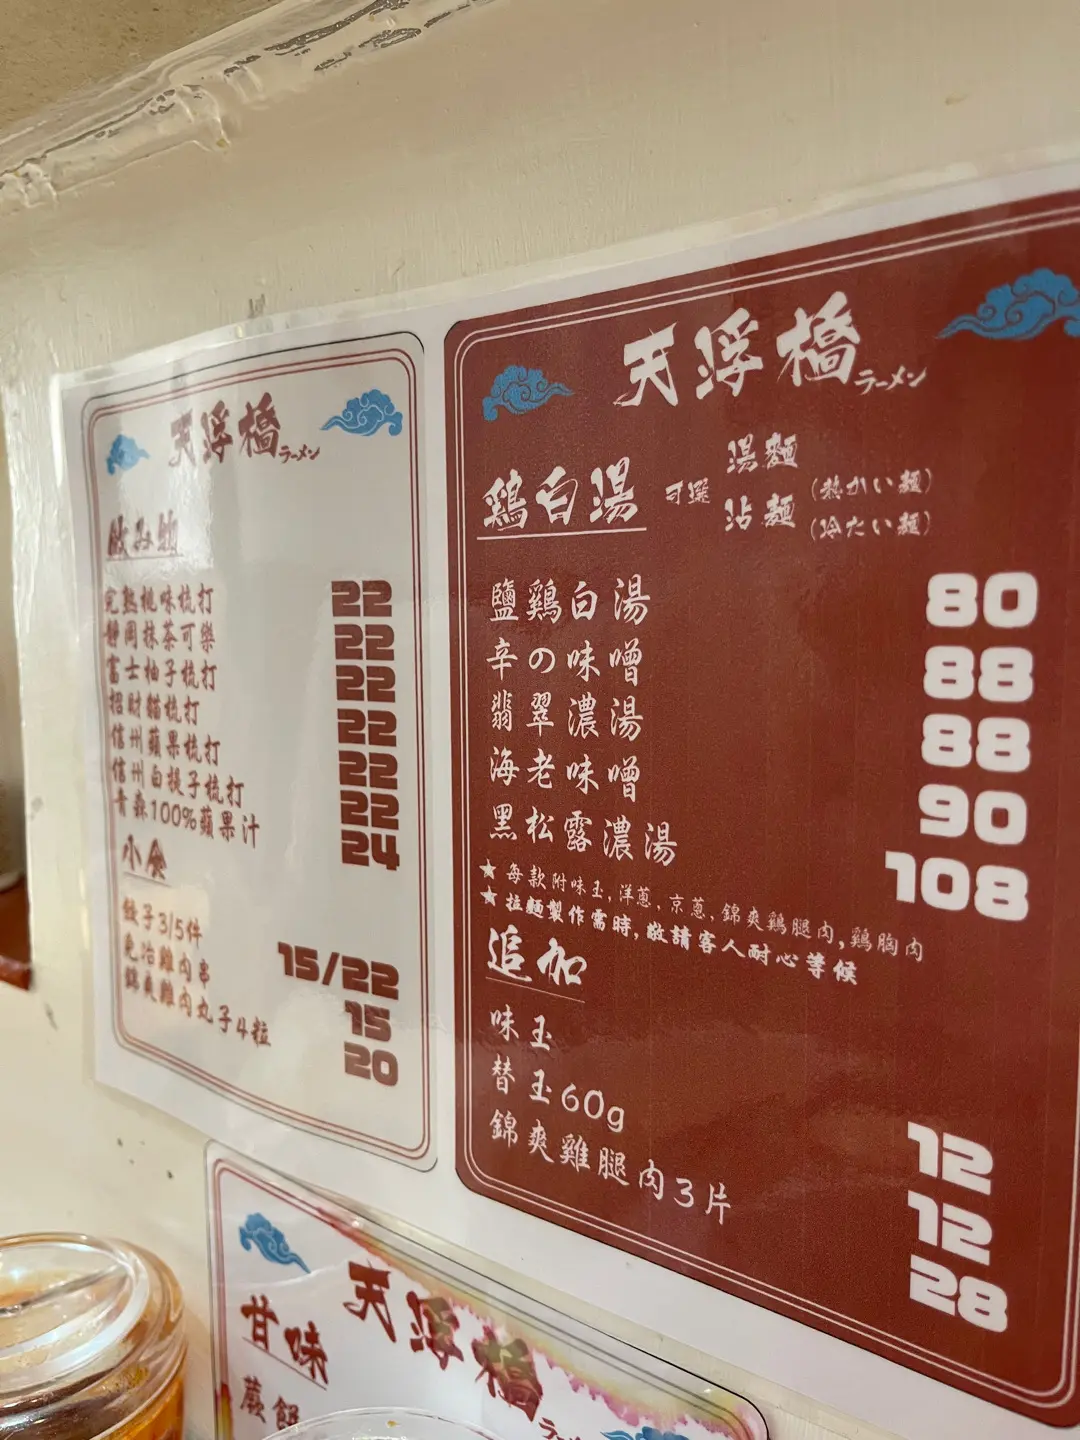 天浮橋ラーメン
飲み物
完熟桃味梳打 22
靜岡抹茶可樂 22
富士柚子梳打 22
招財貓梳打 22
信州蘋果梳打 22
信州白提子梳打 22
青森100%蘋果汁 24
小食
餃子3/5件 15/22
免治雞肉串 15
錦爽雞肉丸子4粒 20
天浮橋ラーメン
鶏白湯 可選 湯麵 (熱かい麺)
沾麵 (冷たい麺)
鹽鶏白湯 80
辛の味噌 88
翡翠濃湯 88
海老味噌 90
黑松露濃湯 108
★ 每款附味玉, 洋蔥, 京蔥, 錦爽鶏腿肉, 鶏胸肉
★ 拉麵製作需時, 敬請客人耐心等候
追加
味玉 12
替玉60g 12
錦爽雞腿肉3片 28
天浮橋ラーメン
甘味
蕨餅